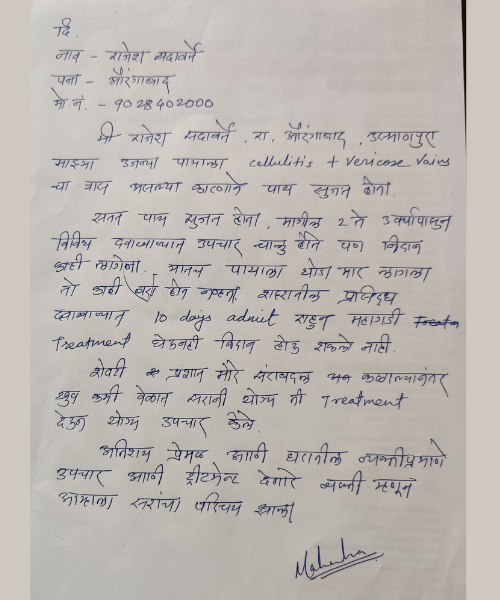 दि.
नाव - राजेश सदावर्ते
पत्ता - औरंगाबाद
मो नं. - 9028402000
मी राजेश सदावर्ते, रा. औरंगाबाद, उस्मानपुरा
माझ्या उजव्या पायाला cellulitis + vericose vains
चा त्रास असल्या कारणाने पाय सुजत होता.
सतत पाय सुजत होता, मागील 2 ते 3 वर्षापासुन
विविध दवाखान्यात उपचार चालु होते पण निदान
काही लागेना. मानच पायाला थोडा मार लागला
तो काही बरा होत नव्हता शहरातील प्रसिध्द
दवाखान्यात 10 days admit राहुन महागडी
Treatment घेऊनही निदान होऊ शकले नाही.
शेवटी प्रशांत मोरे सरांबद्दल कळाल्यानंतर
खुप कमी वेळात सरांनी योग्य ती Treatment
देऊन योग्य उपचार केले.
अतिशय प्रेमळ आणी घरातील व्यक्तीप्रमाणे
उपचार आणी ट्रीटमेन्ट देणारे व्यक्ती म्हणून
आम्हाला सरांचा परिचय झाला